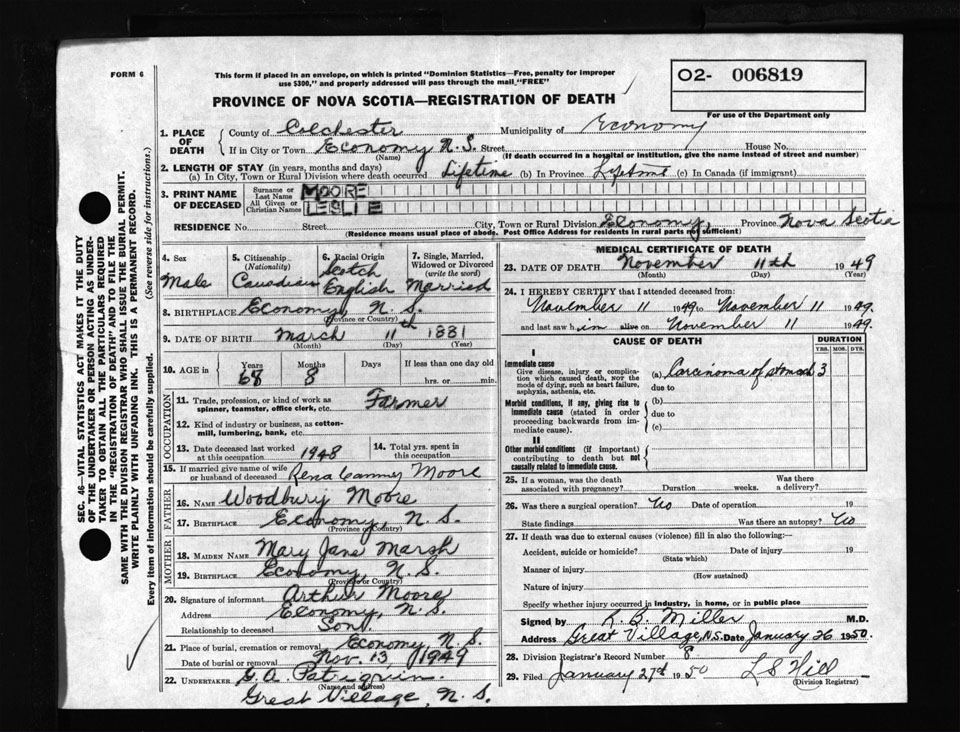 FORM 6
This form if placed in an envelope, on which is printed "Dominion Statistics—Free, penalty for improper
use $300," and properly addressed will pass through the mail "FREE"
O2- 006819
PROVINCE OF NOVA SCOTIA—REGISTRATION OF DEATH
For use of the Department only
1. PLACE OF DEATH
County of Colchester Municipality of Economy
If in City or Town Economy N. S. Street House No.
(Name) (If death occurred in a hospital or institution, give the name instead of street and number)
2. LENGTH OF STAY (in years, months and days)
(a) In City, Town or Rural Division where death occurred Lifetime (b) In Province Lifetime (c) In Canada (if immigrant)
3. PRINT NAME OF DECEASED
Surname or Last Name MOORE
All Given or Christian Names LESLIE
RESIDENCE No. Street City, Town or Rural Division Economy, Province Nova Scotia
(Residence means usual place of abode. Post Office Address for residents in rural parts not sufficient)
4. Sex Male
5. Citizenship (Nationality) Canadian
6. Racial Origin Scotch English
7. Single, Married, Widowed or Divorced (write the word) Married
8. BIRTHPLACE Economy, N. S.
(Province or Country)
9. DATE OF BIRTH March th 1881
(Month) (Day) (Year)
10. AGE in Years 68 Months 8 Days If less than one day old
hrs. or min.
OCCUPATION
11. Trade, profession, or kind of work as spinner, teamster, office clerk, etc. Farmer
12. Kind of industry or business, as cotton-mill, lumbering, bank, etc.
13. Date deceased last worked at this occupation 1948
14. Total yrs. spent in this occupation
15. If married give name of wife or husband of deceased Rena Moore
FATHER
16. NAME Woodbury Moore
17. BIRTHPLACE Economy, N. S.
(Province or Country)
MOTHER
18. MAIDEN NAME Mary Jane Marsh
19. BIRTHPLACE Economy, N. S.
(Province or Country)
20. Signature of informant Arthur Moore
Address Economy, N. S.
Relationship to deceased Son.
21. Place of burial, cremation or removal Economy N. S.
Date of burial or removal Nov. 13, 1949
22. UNDERTAKER G. A.
(Name and address)
Great Village, N. S.
MEDICAL CERTIFICATE OF DEATH
23. DATE OF DEATH November 11th 1949
(Month) (Day) (Year)
24. I HEREBY CERTIFY that I attended deceased from:
November 11 1949 to November 11 1949.
and last saw him alive on November 11 1949.
CAUSE OF DEATH
DURATION
YRS. MOS. DYS.
I
Immediate cause
Give disease, injury or complication which caused death, NOT the mode of dying, such as heart failure, asphyxia, asthenia, etc.
(a) Carcinoma of stomach 3
due to
Morbid conditions, if any, giving rise to immediate cause (stated in order proceeding backwards from immediate cause).
(b)
due to
(c)
II
Other morbid conditions (if important) contributing to death but not causally related to immediate cause.
25. If a woman, was the death associated with pregnancy? Duration weeks. Was there a delivery?
26. Was there a surgical operation? No Date of operation 19
State findings Was there an autopsy? No
27. If death was due to external causes (violence) fill in also the following:—
Accident, suicide or homicide? Date of injury 19
(State which)
Manner of injury
(How sustained)
Nature of injury
Specify whether injury occurred in industry, in home, or in public place
Signed by R. B. Miller M.D.
Address Great Village, N.S. Date January 26 1950.
28. Division Registrar's Record Number 8
29. Filed January 27th 1950 L S Hill
(Division Registrar)
SEC. 46—VITAL STATISTICS ACT MAKES IT THE DUTY
OF THE UNDERTAKER OR PERSON ACTING AS UNDER-
TAKER TO OBTAIN ALL THE PARTICULARS REQUIRED
IN THE "REGISTRATION OF DEATH" AND TO FILE THE
SAME WITH THE DIVISION REGISTRAR WHO SHALL ISSUE THE BURIAL PERMIT.
WRITE PLAINLY WITH UNFADING INK. THIS IS A PERMANENT RECORD.
Every item of information should be carefully supplied. (See reverse side for instructions.)